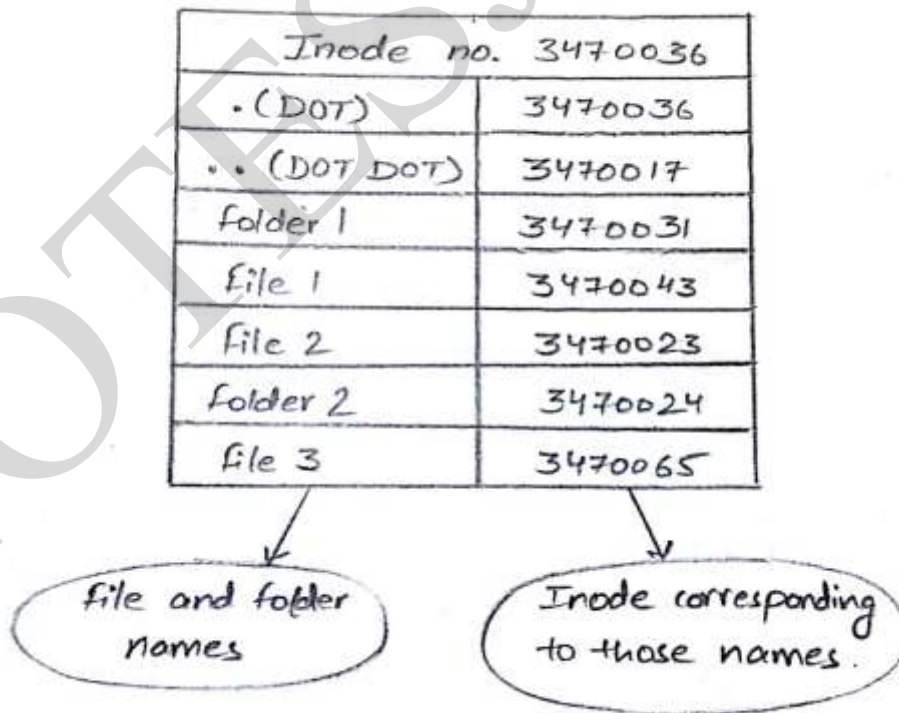 Inode no. 3470036
. (DOT) 3470036
.. (DOT DOT) 3470017
folder 1 3470031
file 1 3470043
file 2 3470023
folder 2 3470024
file 3 3470065
file and folder
names
Inode corresponding
to those names.